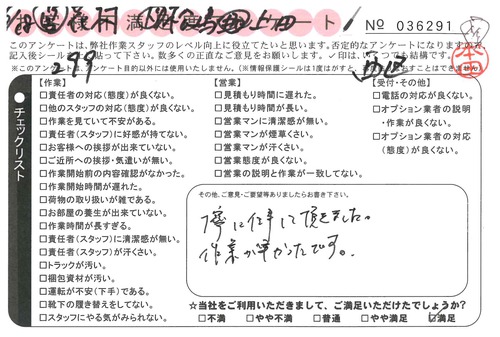 お客様不満足度アンケート
No 036291
このアンケートは、弊社作業スタッフのレベル向上に役立てたいと思います。否定的なアンケートになりますので、
記入後シールを貼って下さい。数多くの正直なご意見をお願いします。✓印は、いくつでも結構です。
※このアンケートはアンケート目的以外には使用いたしません。
チェックリスト
【作業】
□責任者の対応(態度)が良くない。
□他のスタッフの対応(態度)が良くない。
□作業を見ていて不安がある。
□責任者(スタッフ)に好感が持てない。
□お客様への挨拶が出来ていない。
□ご近所への挨拶・気遣いが無い。
□作業開始前の内容確認がなかった。
□作業開始時間が遅れた。
□荷物の取り扱いが雑である。
□お部屋の養生が出来ていない。
□作業時間が長すぎる。
□責任者(スタッフ)に清潔感が無い。
□責任者(スタッフ)が汗くさい。
□トラックが汚い。
□梱包資材が汚い。
□運転が不安(下手)である。
□靴下の履き替えをしてない。
□スタッフにやる気がみられない。
【営業】
□見積もり時間に遅れた。
□見積もり時間が長い。
□営業マンに清潔感が無い。
□営業マンが煙草くさい。
□営業マンが汗くさい。
□営業態度が良くない。
□営業の説明と作業が一致してない。
【受付・その他】
□電話の対応が良くない。
□オプション業者の説明
・作業が良くない。
□オプション業者の対応
(態度)が良くない。
その他、ご意見・ご要望等ありましたらお書き下さい。
丁寧に仕事して頂きました。
作業が早かったです。
☆当社をご利用いただきまして、ご満足いただけたでしょうか?
□不満 □やや不満 □普通 □やや満足 ☑満足